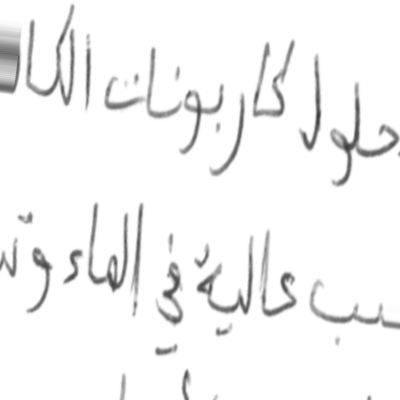 حلول كاربونات الكا
سب عالية في الماء وتد